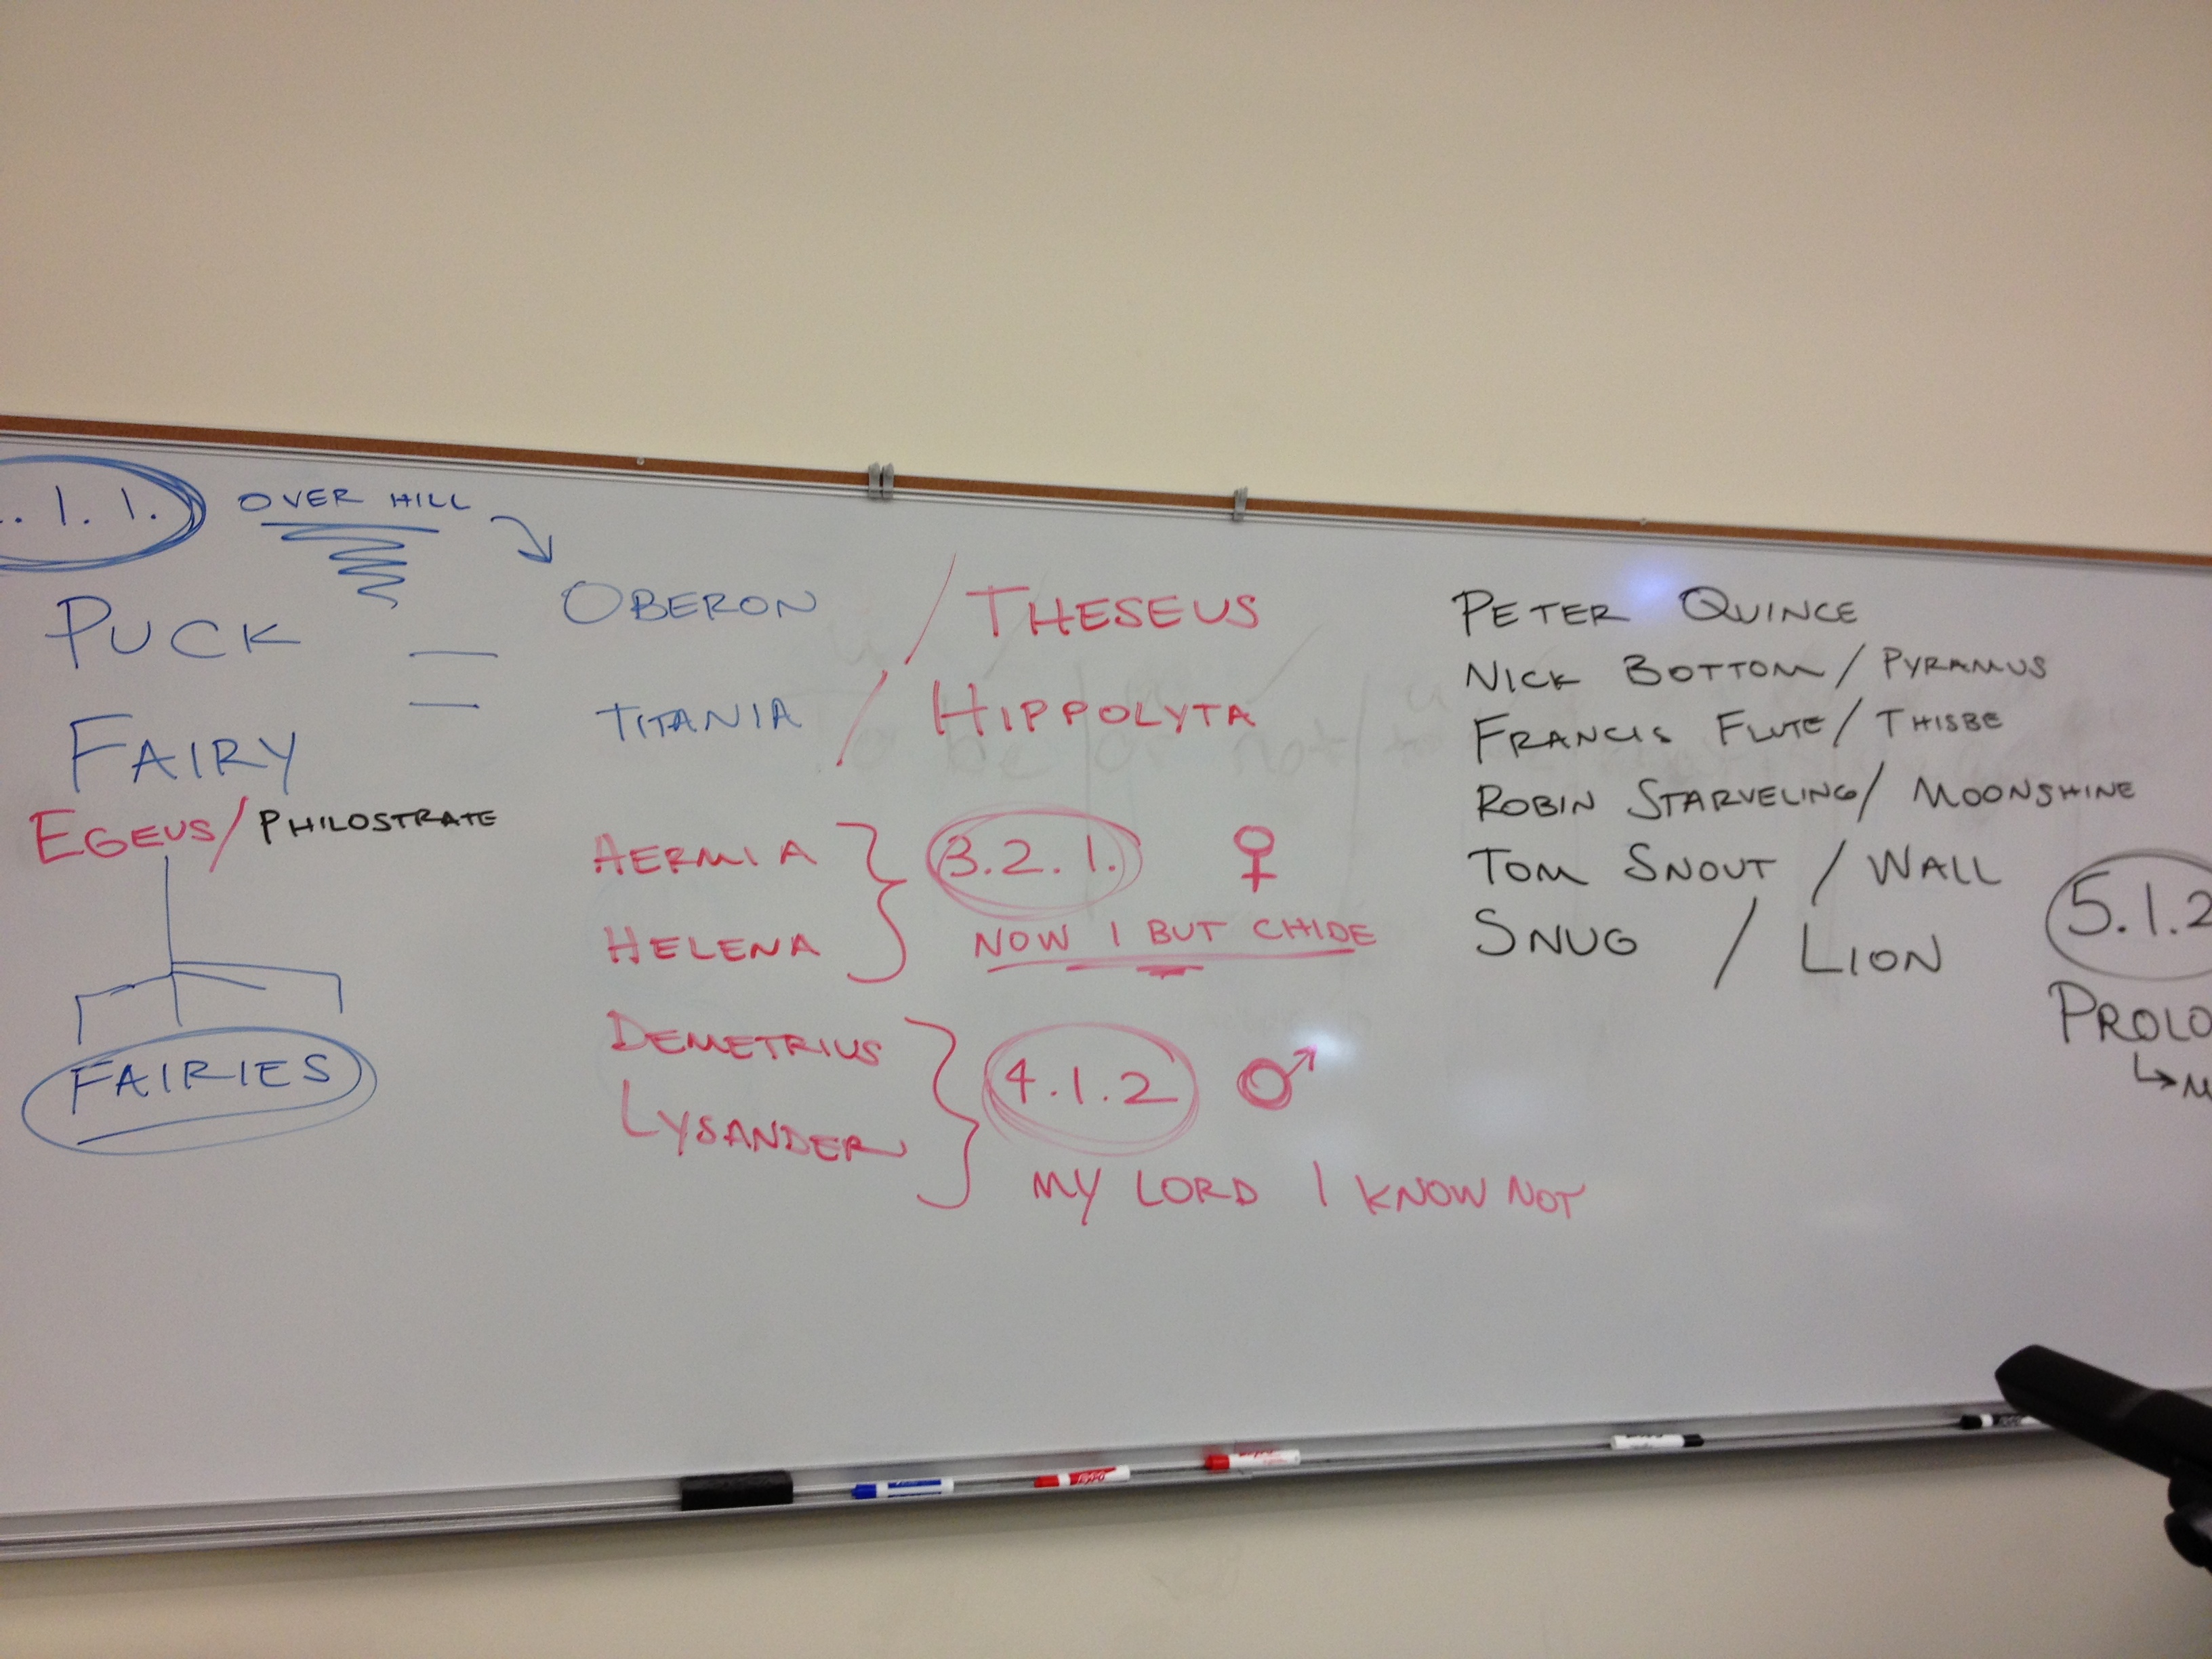 . 1. 1. OVER HILL
PUCK
FAIRY
EGEUS/PHILOSTRATE
FAIRIES
OBERON / THESEUS
TITANIA / HIPPOLYTA
HERMIA
HELENA
3.2.1. ♀
NOW I BUT CHIDE
DEMETRIUS
LYSANDER
4.1.2 ♂
MY LORD I KNOW NOT
PETER QUINCE
NICK BOTTOM / PYRAMUS
FRANCIS FLUTE / THISBE
ROBIN STARVELING / MOONSHINE
TOM SNOUT / WALL
SNUG / LION
5.1.2
PROLO
To be or not